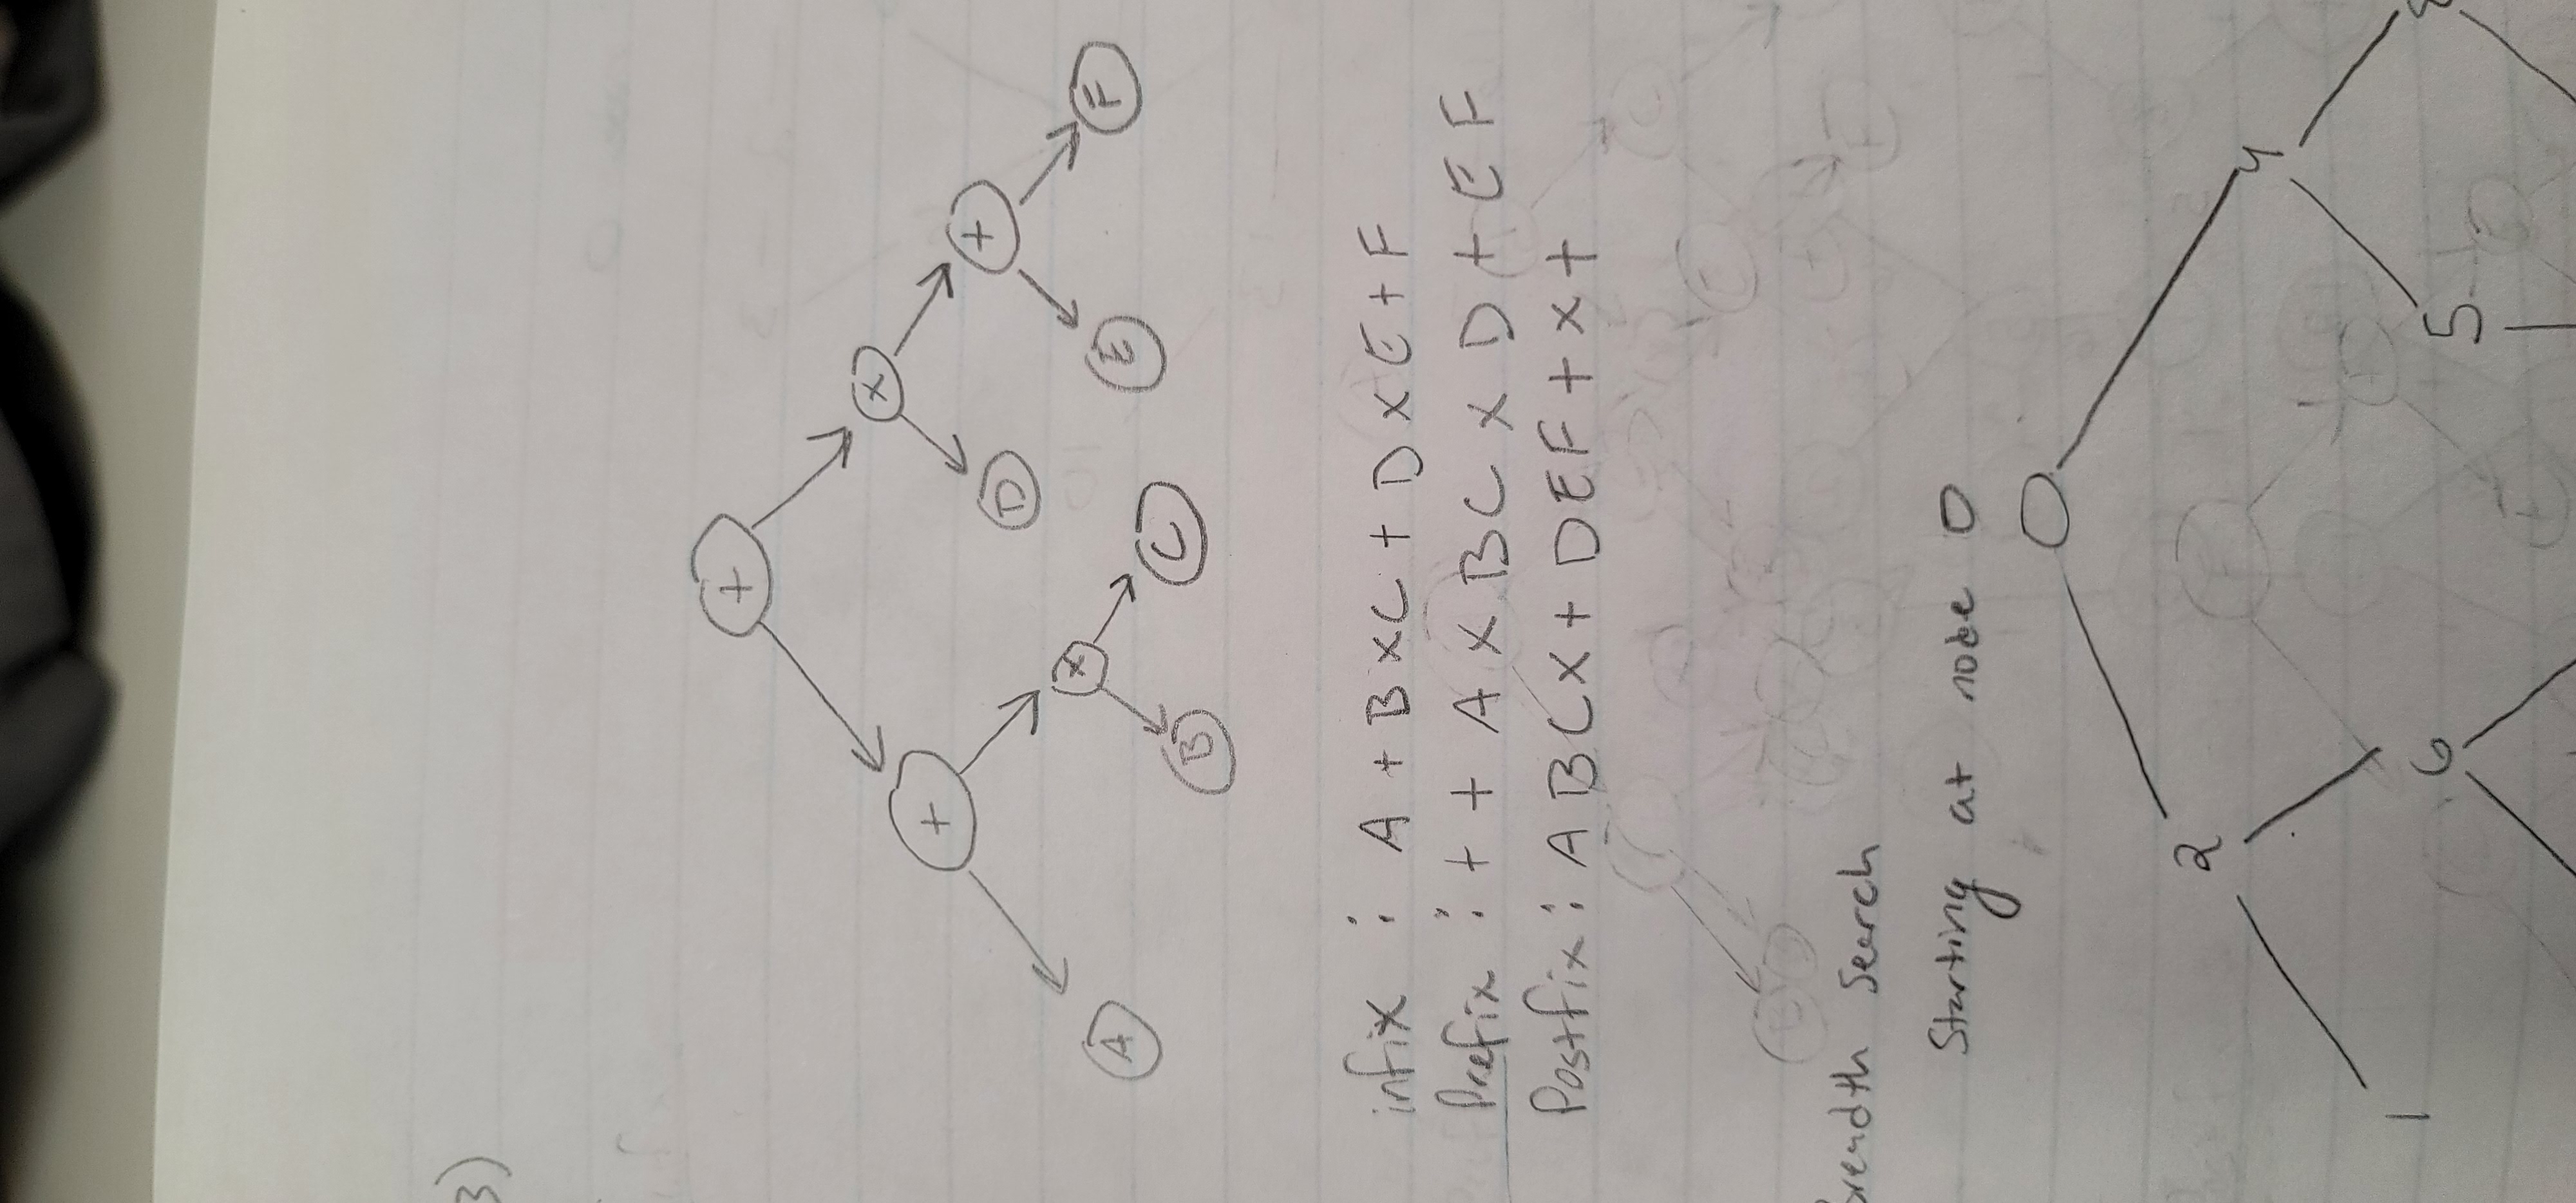 3)
+
+ x
A x D +
B C E F
infix : A + B x C + D x E + F
Prefix : + + A x B C x D + E F
Postfix : A B C x + D E F + x +
Breadth Search
Starting at node 0
0
2 4
1 6 5 8